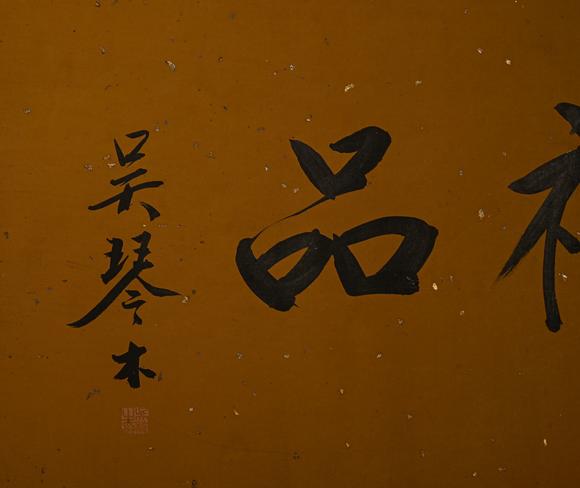 品
吴琴木